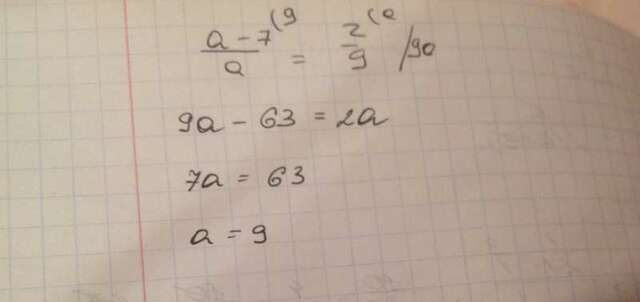 (a - 7)/a ⁽⁹ = 2/9 ⁽ᵃ /9a
9a - 63 = 2a
7a = 63
a = 9